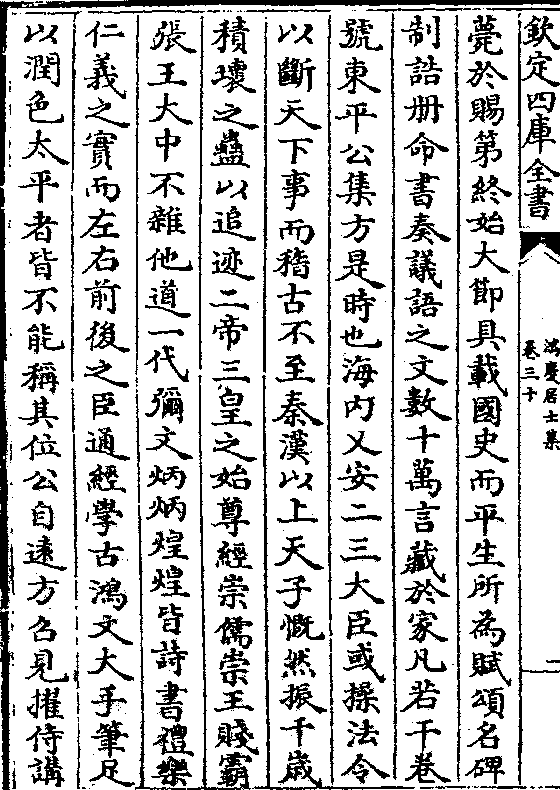 欽定四庫全書
鴻慶居士集
卷三十
一
薨於賜第終始大節具載國史而平生所為賦頌名碑
制誥册命書奏議語之文數十萬言藏於家凡若干卷
號東平公集方是時也海内乂安二三大臣或操法令
以斷天下事而稽古不至秦漢以上天子慨然振千歳
積壞之蠱以追迹二帝三皇之始尊經崇儒崇王賤霸
張王大中不雜他道一代彌文炳炳煌煌皆詩書禮樂
仁義之實而左右前後之臣通經學古鴻文大手筆足
以潤色太平者皆不能稱其位公自遠方召見擢侍講